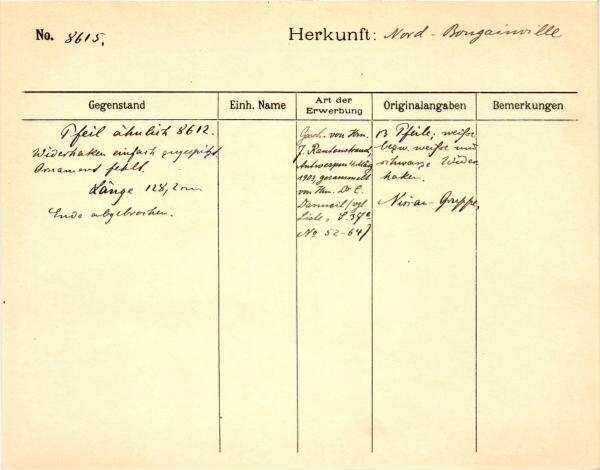 No. 8615,
Herkunft: Nord - Bougainville
Gegenstand
Einh. Name
Art der Erwerbung
Originalangaben
Bemerkungen
Pfeil ähnlich 8612.
Widerhaken einfach zugespitzt
Ornament fehlt.
Länge 128,2 cm
Ende abgebrochen.
Gesch. von Hrn.
J. Rautenstrauch
Antwerpen 4. März
1903, gesammelt
von Hrn. Dr. E.
Danneil (vgl
Liste, S. 37
No 52-64)
13 Pfeile, weiße
bezw. weiße und
schwarze Wider
haken.
Nissan-Gruppe,